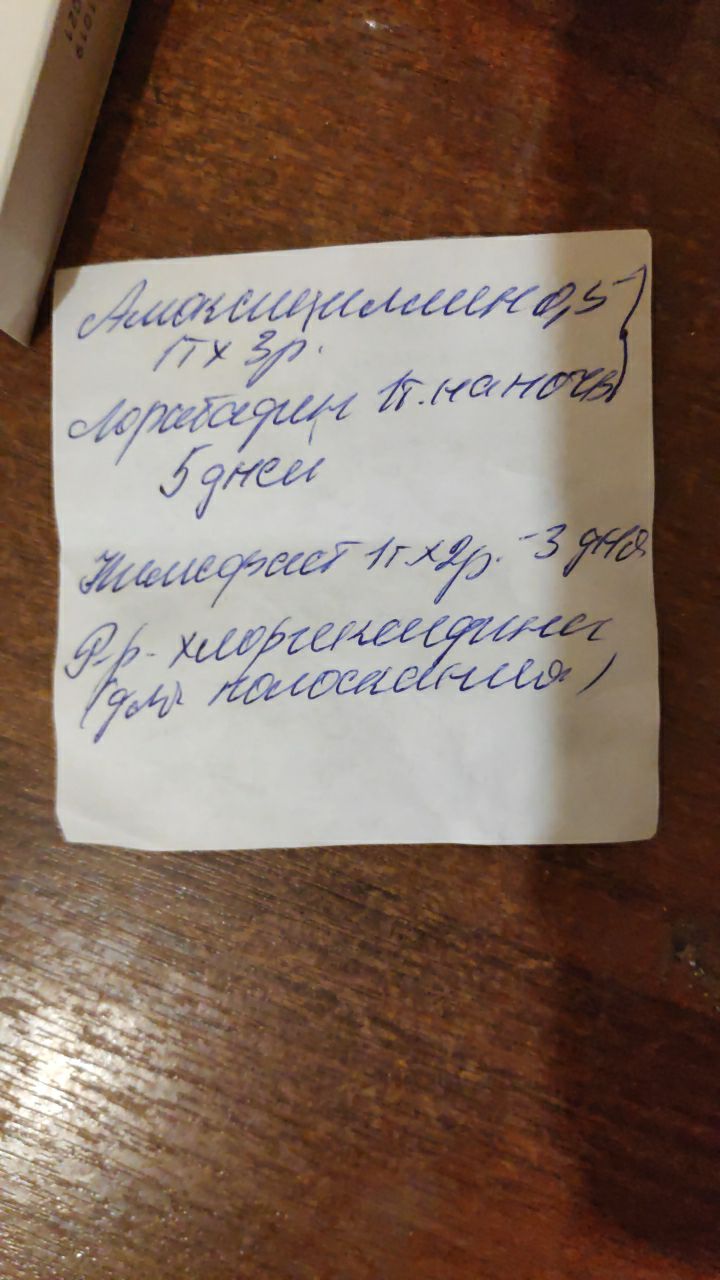 Амоксициллин 0,5
1т х 3р.
Лоратадин 1т. на ночь
5 дней
Нимефаст 1т х 2р. - 3 дня
Р-р. хлоргексидина
(для полоскания)